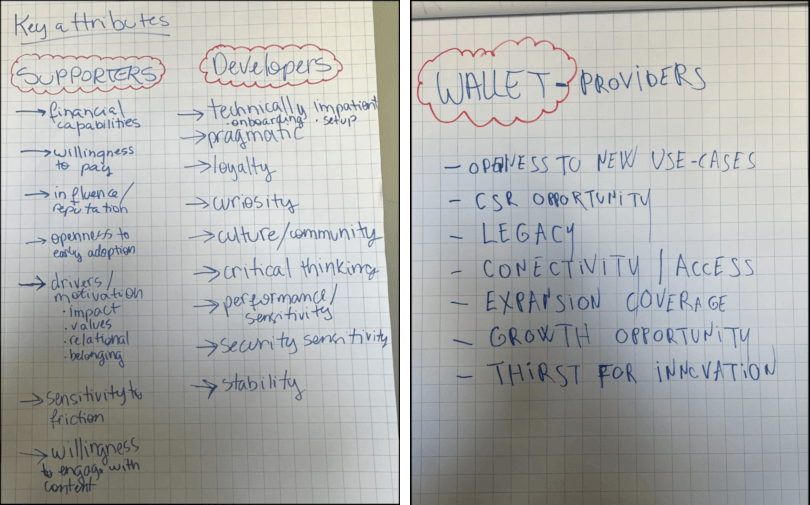 Key attributes
SUPPORTERS
→ financial
capabilities
→ willingness
to pay
→ influence/
reputation
→ openness to
early adoption
→ drivers/
motivation
· impact
· values
· relational
· belonging
→ sensitivity to
friction
→ willingness
to engage with
content
Developers
→ technically impatient
· onboarding · setup
→ pragmatic
→ loyalty
→ curiosity
→ culture/community
→ critical thinking
→ performance/
sensitivity
→ security sensitivity
→ stability
WALLET - PROVIDERS
- OPENNESS TO NEW USE-CASES
- CSR OPPORTUNITY
- LEGACY
- CONECTIVITY / ACCESS
- EXPANSION COVERAGE
- GROWTH OPPORTUNITY
- THIRST FOR INNOVATION